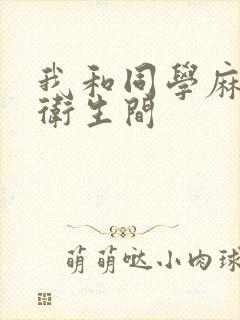 我和同學麻
衛生間
萌萌哒小肉球